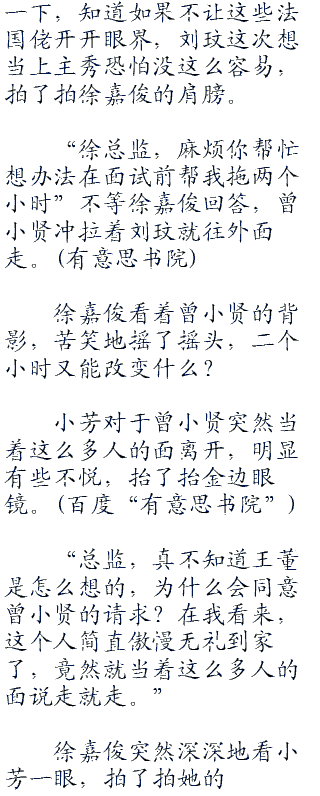 一下，知道如果不让这些法
国佬开开眼界，刘玟这次想
当上主秀恐怕没这么容易，
拍了拍徐嘉俊的肩膀。
“徐总监，麻烦你帮忙
想办法在面试前帮我拖两个
小时”不等徐嘉俊回答，曾
小贤冲拉着刘玟就往外面
走。(有意思书院)
徐嘉俊看着曾小贤的背
影，苦笑地摇了摇头，二个
小时又能改变什么？
小芳对于曾小贤突然当
着这么多人的面离开，明显
有些不悦，抬了抬金边眼
镜。(百度“有意思书院”)
“总监，真不知道王董
是怎么想的，为什么会同意
曾小贤的请求？在我看来，
这个人简直傲慢无礼到家
了，竟然就当着这么多人的
面说走就走。”
徐嘉俊突然深深地看小
芳一眼，拍了拍她的